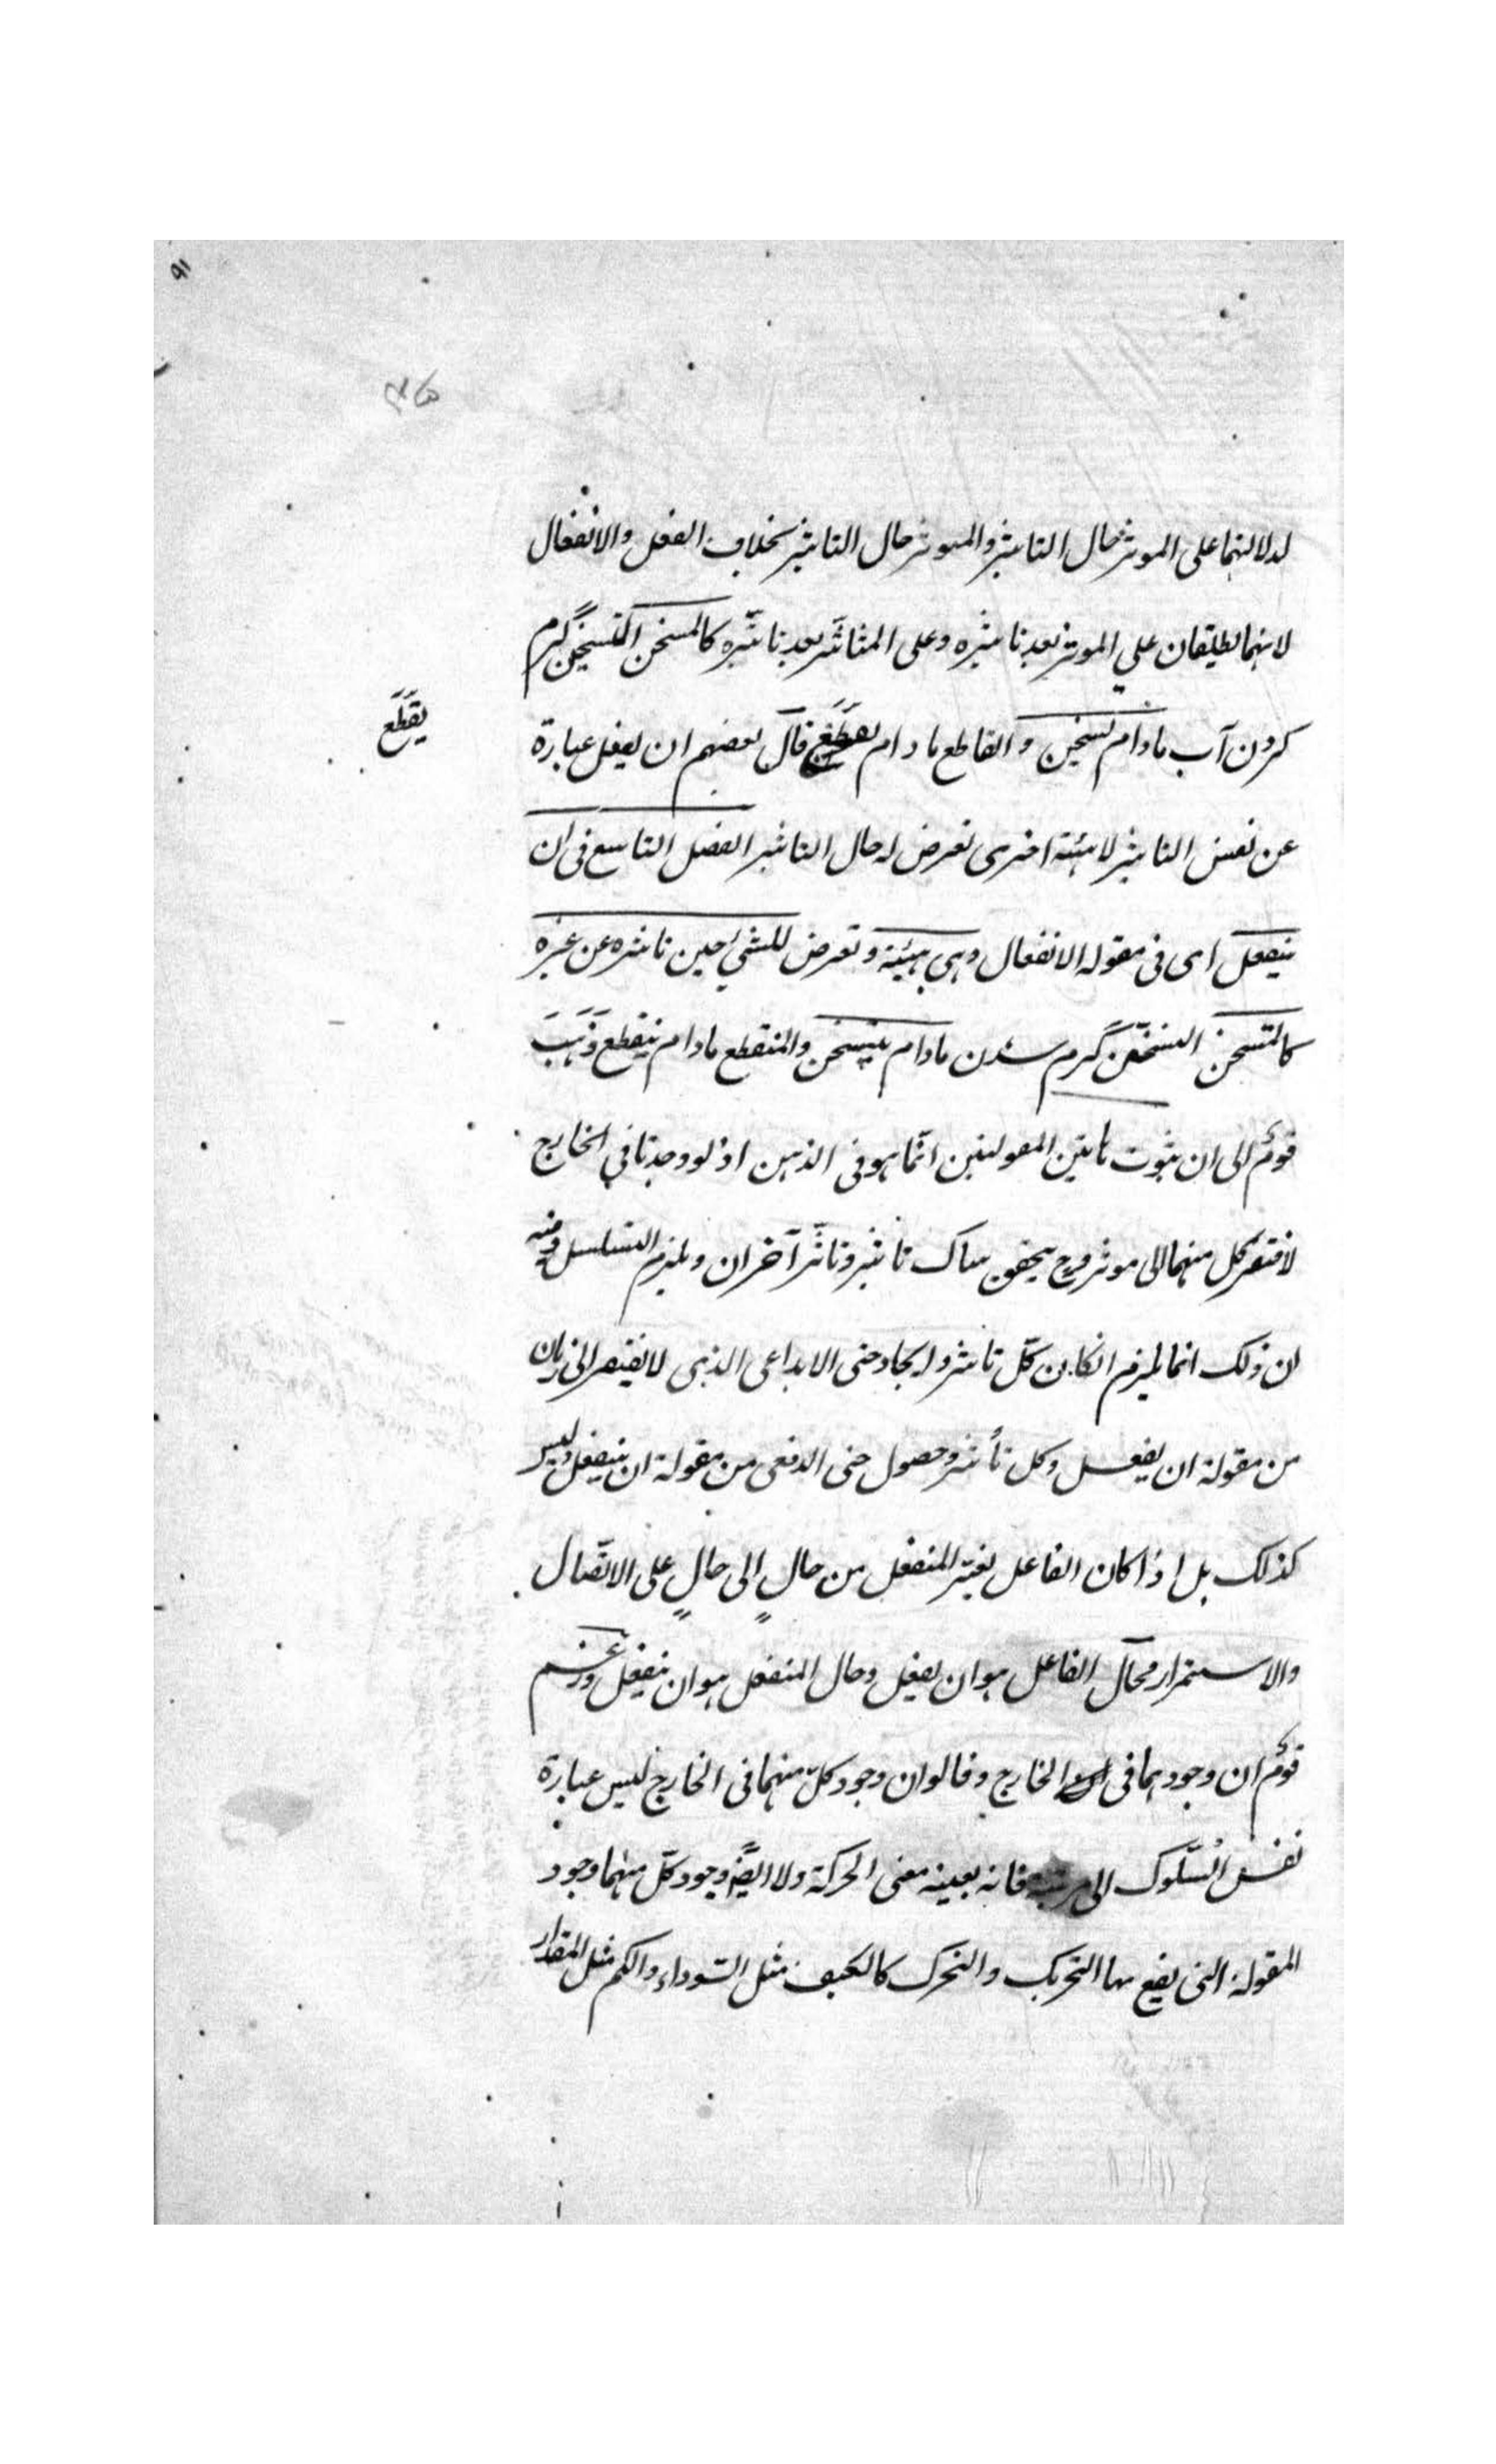 ٩١
لدلالتهما على الموثر حال التاثير والمتوثر حال التاثير بخلاف الفعل والانفعال
لانهما يطلقان على الموثر بعد تاثيره وعلى المتاثر بعد تاثيره كالمسخن التسخين گرم
كردن آب مادام تسخين والقاطع مادام يقطع قال بعضهم ان يفعل عبارة
يقطع
عن نفس التاثير لا هيئة اخرى تعرض له حال التاثير الفصل التاسع فى ان
ينفعل اى فى مقولة الانفعال وهى هيئة وتعرض للشئ حين تاثره عن غيره
كالمتسخن التسخّن گرم شدن مادام يتسخن والمنقطع مادام ينقطع وذهب
قوم الى ان ثبوت هاتين المقولتين انّما هو فى الذهن اذ لو وجدتا فى الخارج
لافتقر كل منهما الى موثر وح يتحقق هناك تاثير وتاثّر آخران ويلزم التسلسل وفيه
ان ذلك انما يلزم لو كان كلّ تاثير وايجاد حتى الابداعى الذى لا يفتقر الى زمان
من مقولة ان يفعل وكل تأثر وحصول حتى الدفعى من مقولة ان ينفعل وليس
كذلك بل اذا كان الفاعل يغير المنفعل من حالٍ الى حالٍ على الاتّصال
والاستمرار فحال الفاعل هو ان يفعل وحال المنفعل هو ان ينفعل وزعم
قوم ان وجودهما فى الخارج وقالوا ان وجود كلّ منهما فى الخارج ليس عبارة
نفس السّلوك الى مرتبة فانه بعينه معنى الحركة ولا ايضًا وجود كلّ منهما وجود
المقولة التى يقع بها التحريك والتحرك كالكيف مثل السّوداء والكم مثل المقدار